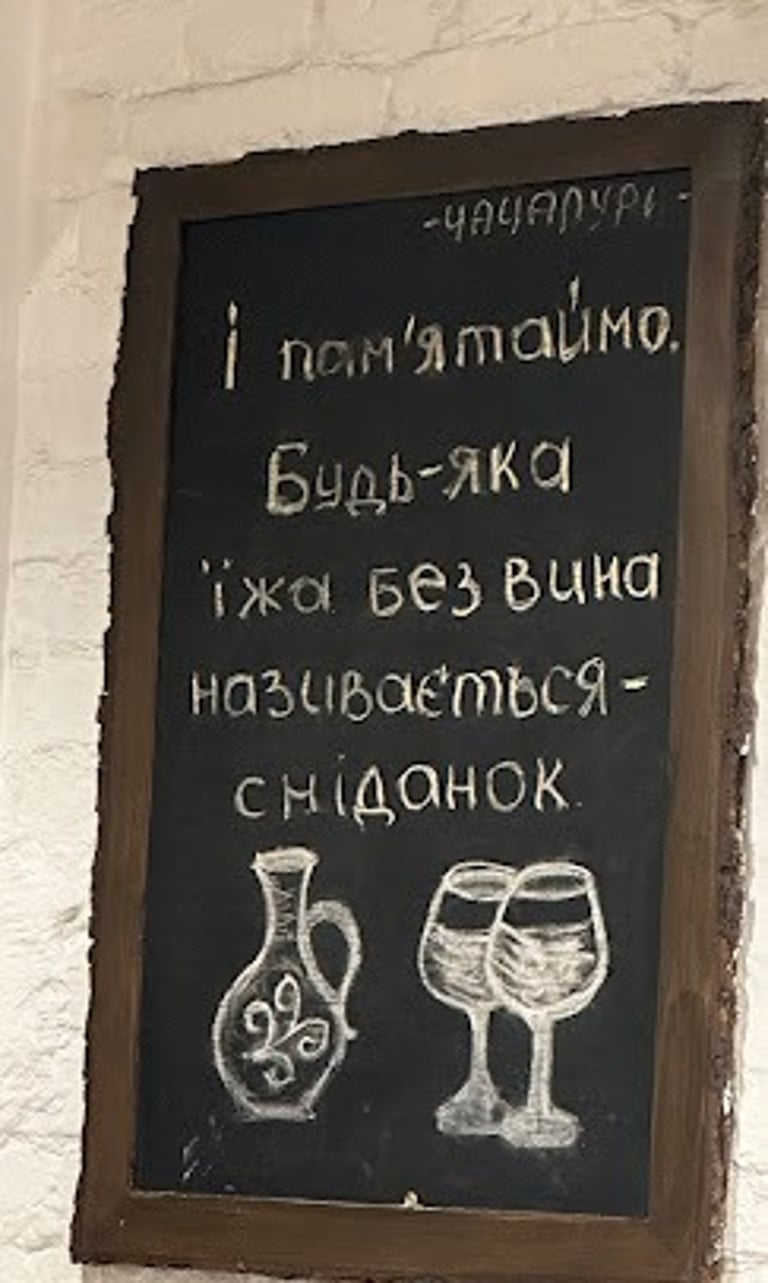 -ЧАЧАПУРІ-
І пам'ятаймо.
Будь-яка
їжа без вина
називається-
сніданок.